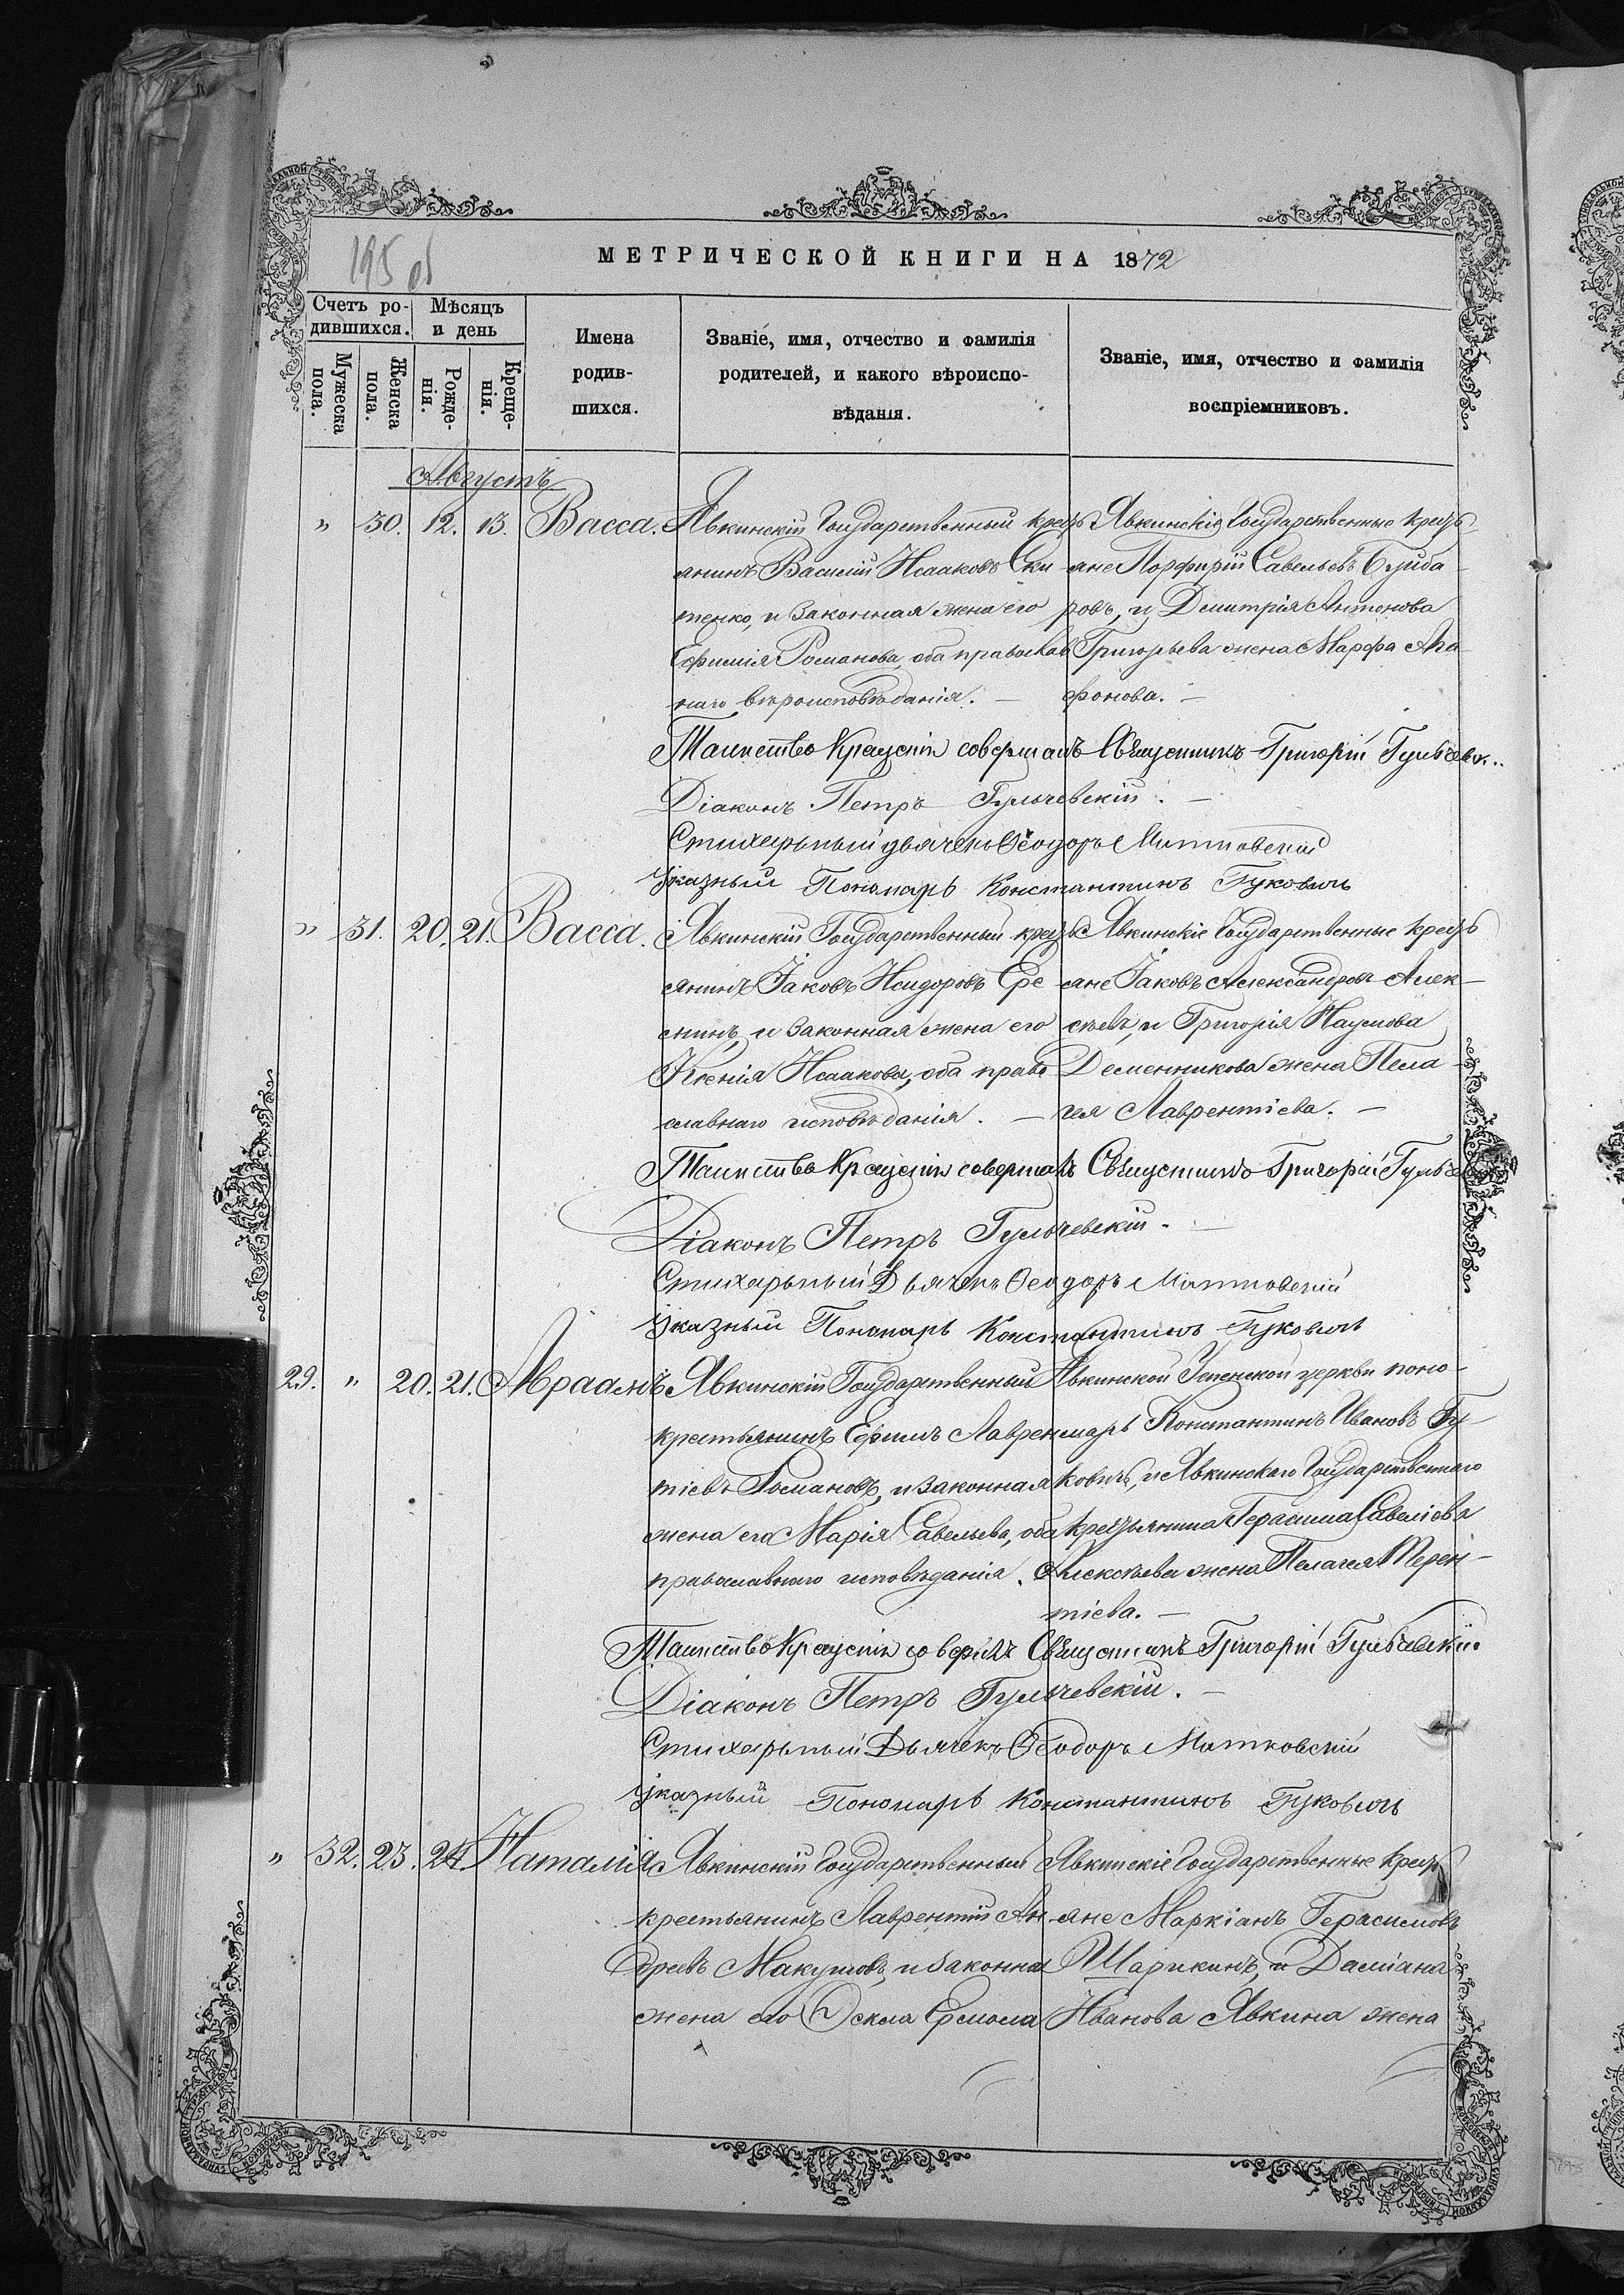 195 об
МЕТРИЧЕСКОЙ КНИГИ НА 1872
Счетъ ро-
дившихся.
Мѣсяцъ
и день
Мужеска
пола.
Женска
пола.
Рожде-
нія.
Креще-
нія.
Имена
родив-
шихся.
Званіе, имя, отчество и фамилія
родителей, и какого вѣроиспо-
вѣданія.
Званіе, имя, отчество и фамилія
воспріемниковъ.
Августъ
" 30. 12. 13. Васса.
Явкинскій Государственный кресть
янинъ Василій Исааковъ Ски
тенко, и законная жена его
Ефимія Романова, оба православ
наго вѣроисповѣданія. —
Явкинскіе Государственные кресть
яне Порфирій Савельевъ
ровъ, и Димитрія Антонова
Григорьева жена Марфа Ага
фонова. —
Таинство Крещенія совершалъ Священникъ Григорій Гульчевск..
Діаконъ Петръ Гульчевскій. —
Стихарный дьячекъ Ѳеодоръ Митковскій
Указный Пономарь Константинъ Гуковичъ
" 31. 20. 21. Васса.
Явкинскій Государственный кресть
янинъ Іаковъ Исидоровъ Ере
минъ, и законная жена его
Ксенія Исаакова, оба право
славнаго исповѣданія. —
Явкинскіе Государственные кресть
яне Іаковъ Александровъ Алек-
сѣевъ, и Григорія Наумова
Деменникова жена Пела-
гея Лаврентіева. —
Таинство Крещенія совершалъ Священникъ Григорій Гульче
Діаконъ Петръ Гульчевскій. —
Стихарный Дьячекъ Ѳеодоръ Митковскій
Указный Пономарь Константинъ Гуковичъ
29. " 20. 21. Авраамій
Явкинскій Государственный
крестьянинъ Ефимъ Лаврен
тіевъ Романовъ, и законная
жена его Марія Савельева, оба
православнаго исповѣданія.
Явкинской Успенской церкви поно-
марь Константинъ Ивановъ Гу-
ковичъ, и Явкинскаго Государственнаго
крестьянина Герасима Савеліева
Алексѣева жена Пелагея Терен-
тіева. —
Таинство Крещенія соверш. Священникъ Григорій Гульчевскій
Діаконъ Петръ Гульчевскій. —
Стихарный Дьячекъ Ѳеодоръ Митковскій
Указный Пономарь Константинъ Гуковичъ
" 32. 23. 24. Наталія
Явкинскій Государственный
крестьянинъ Лаврентій Ан
дреевъ Макушовъ, и законная
жена его Ѳекла Ермола
Явкинскіе Государственные кресть
яне Маркіанъ Герасимовъ
Шарикинъ, и Даміана
Иванова Явкина жена